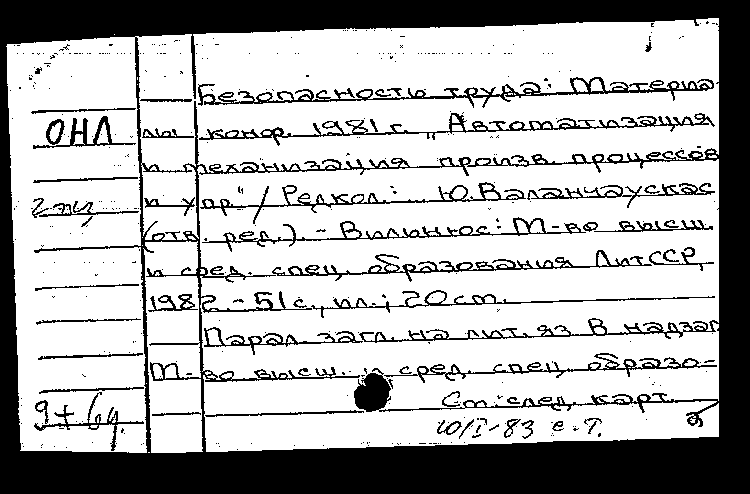 Безопасность труда: Материа-
ОНЛ лы конф. 1981 г. "Автоматизация
и механизация произв. процессов
2 экз и упр." / Редкол.: Ю. Валанчаускас
(отв. ред.). - Вильнюс: М-во высш.
и сред. спец. образования ЛитССР,
1982. - 51 с., ил.; 20 см.
Парал. загл. на лит. яз В надзаг
М-во высш. и сред. спец. образо-
См. след. карт.
10/I-83